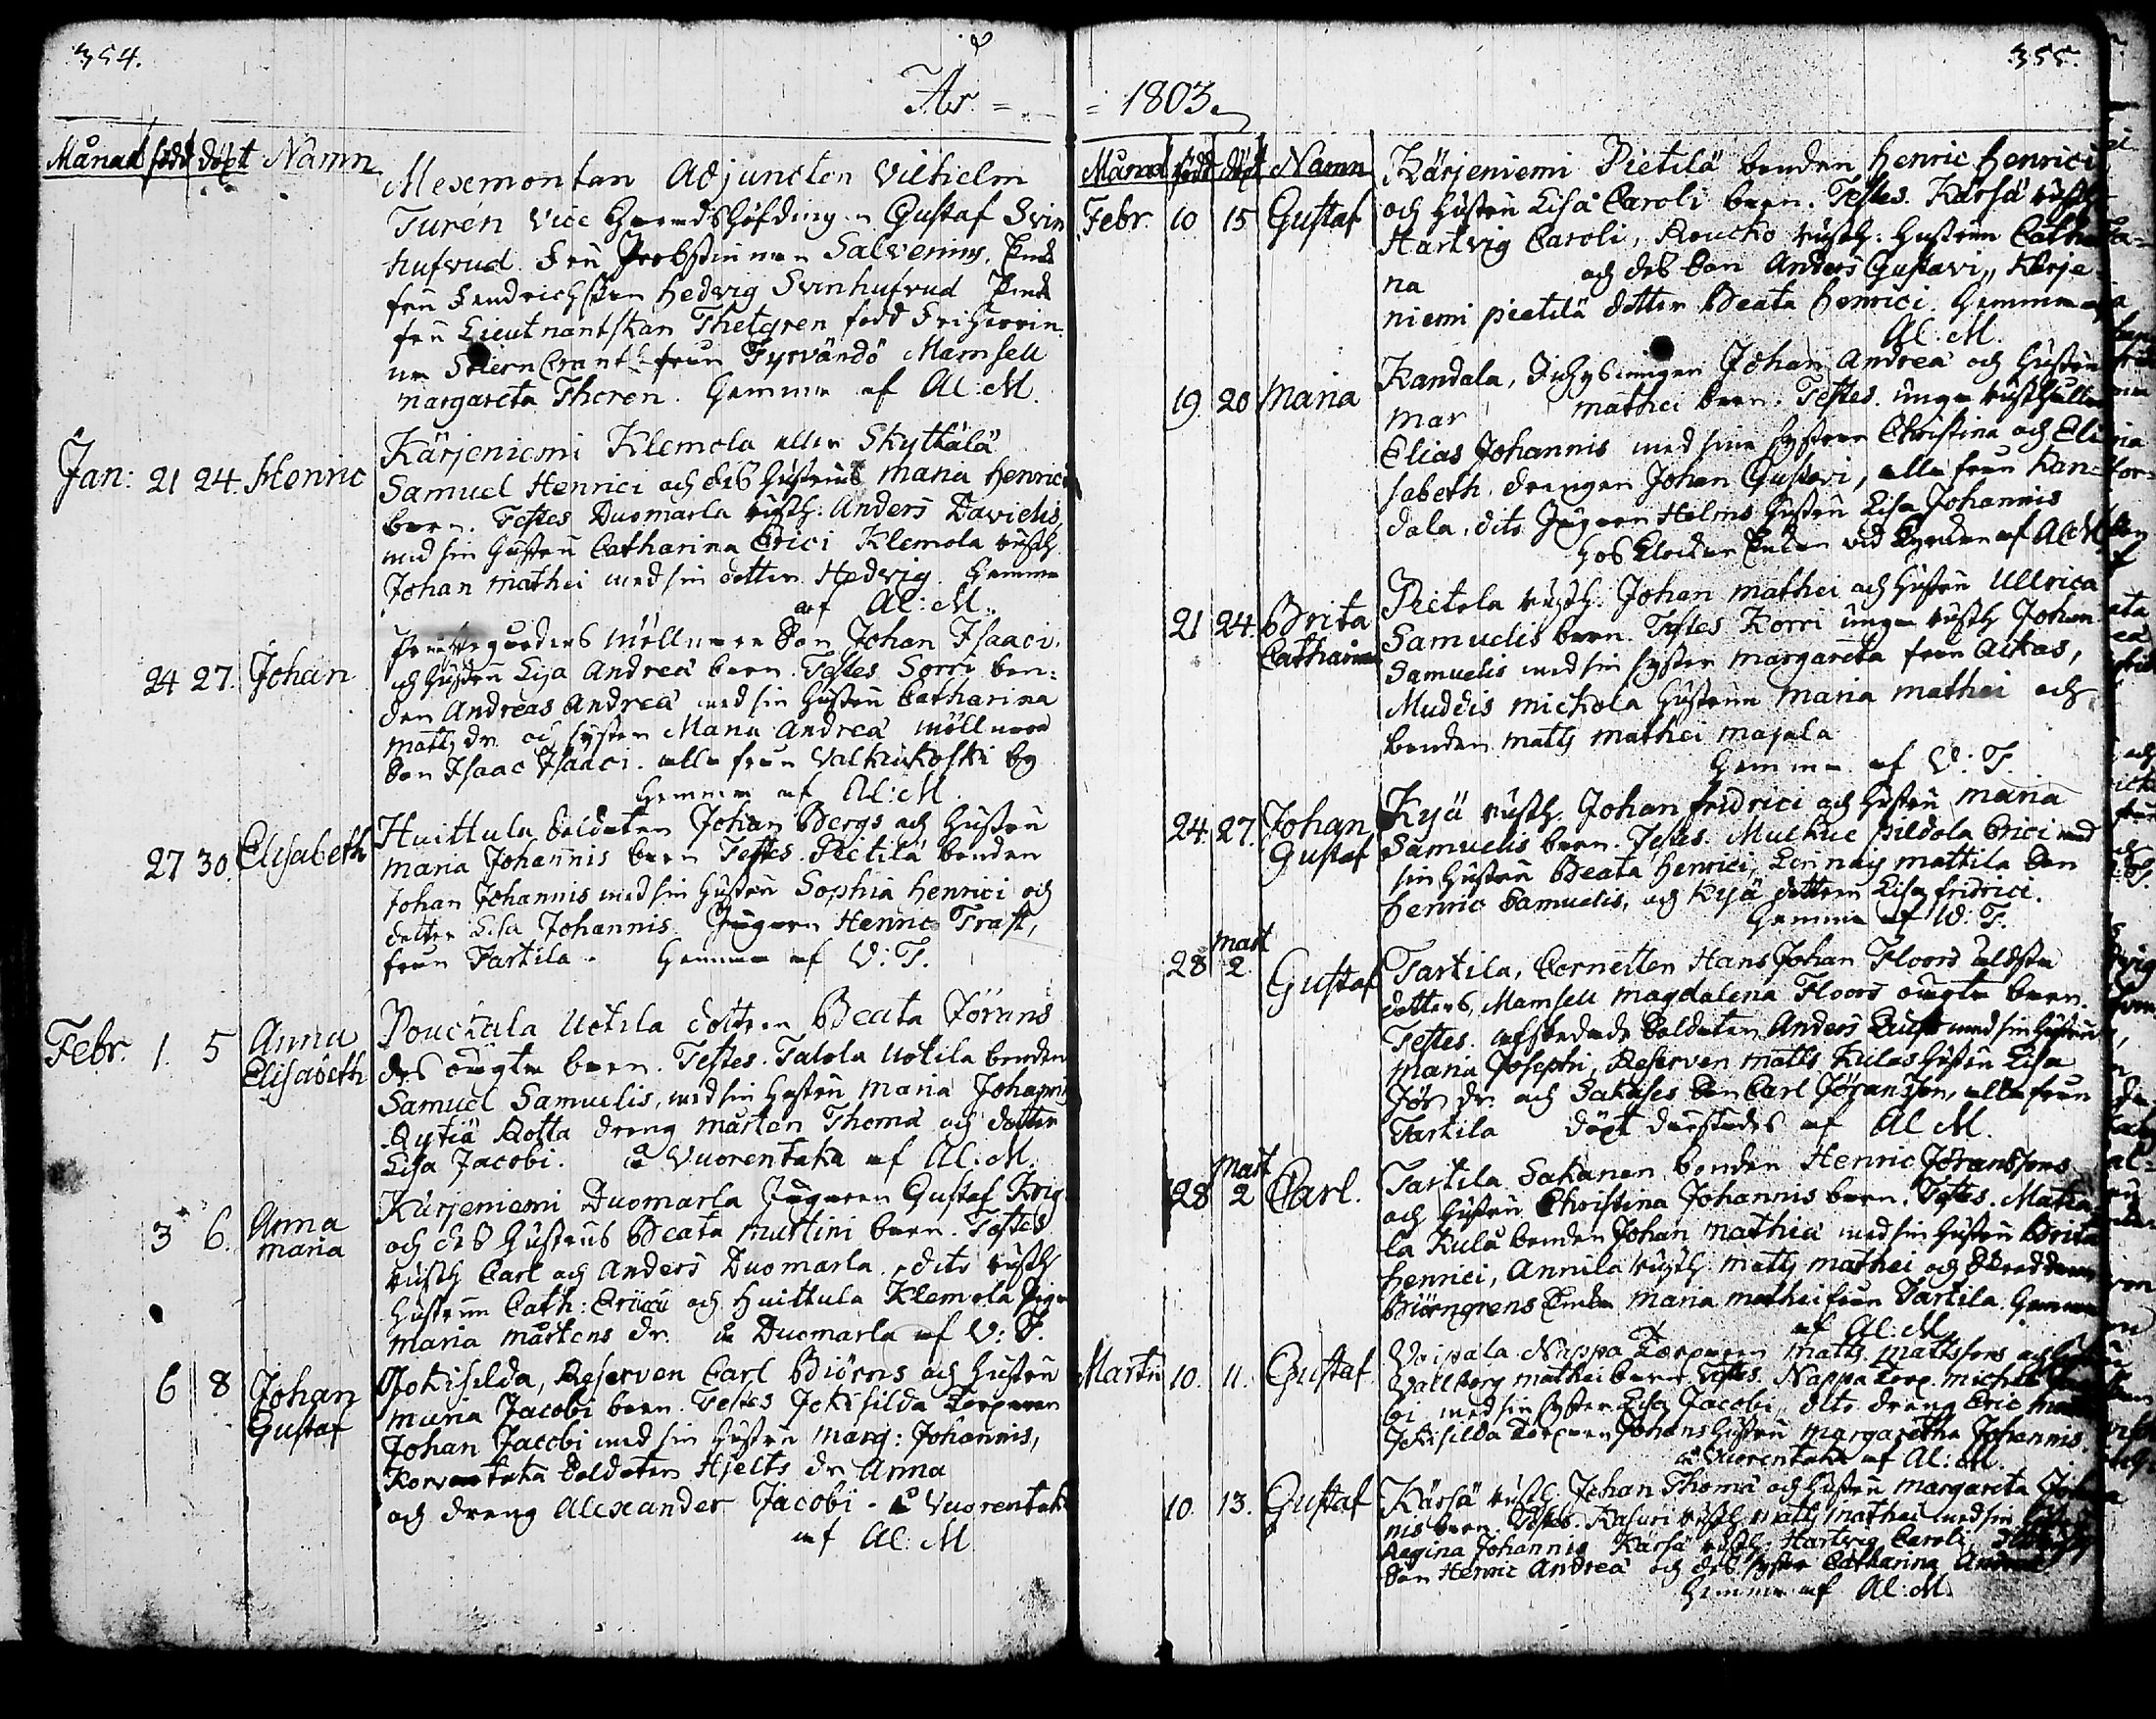 354.
År =
Månad född döpt Namn
Mexmontan Adjuncten Vilhelm
Turén Vice Häradshöfding Gustaf Svin
hufvud Fru Probstinnan Salvenius,
frn Fendrichskan Hedvig Svinhufvud
frn Lieutnantskan Thetgren född Friherrin
na frun Tyrvändö Mamsell
Margareta Theren. Hemma af Al: M.
Jan: 21 24. Henric
Kärjeniemi Klemola eller Skyttälä
Samuel Henrici och des hustrus Maria Henrici
barn. Testes Duomarla rusth. Anders Davidis,
med sin hustru Catharina Erici Klemola rusth
Johan Mathei med sin dotter Hedvig. Hemma
af Al: M.
24 27. Johan
Prästegårdens Möllnare Son Johan Isaaci.
och hustru Lisa Andreä barn. Testes Sorri bon:
den Andreas Andreä med sin hustru Catharina
Matts dr. och syster Maria Andreä möllnare
Son Isaac Isaaci. alla från Valkiakoski by
Hemma af Al: M.
27 30. Elisabeth
Huittula Soldaten Johan Bergs och hustru
Maria Johannis barn Testes. Pietilä bonden
Johan Johannis med sin hustru Sophia Henrici och
dotter Lisa Johannis Jägaren Henric Trast,
från Tartila. Hemma af V: T.
Febr. 1. 5 Anna
Elisabeth
Rouckula Uotila dottren Beata Jörans
des oägta barn. Testes. Talola Uotila bonden
Samuel Samuelis, med sin hustru Maria Johannis
Rytiä Rotta dreng Mårten Thomä och dotter
Lisa Jacobi. i Vuorentaka af Al: M.
3 6. Anna
Maria
Kärjeniemi Duomarla Jägaren Gustaf Krig
och des hustrus Beata Martini barn. Testes
rusth Carl och Anders Duomarla. dito rusth
hustrun Cath: Erici och Huittula Klemola Piga
Maria Mårtens dr. i Duomarla af V: T.
6 8 Johan
Gustaf
Jokisilda, Reserven Carl Biörns och hustru
Maria Jacobi barn. Testes Jokisilda Torparen
Johan Jacobi med sin hustru Marg: Johannis,
Korventaka Soldaten Hjelts dr Anna
och dreng Alexander Jacobi. i Vuorentaka
af Al: M
355.
= 1803.
Månad född döpt Namn
Febr. 10 15 Gustaf
Kärjeniemi Pietilä bonden Henric Henrici
och hustru Lisa Caroli barn. Testes. Kärsä rusth
Hartvig Caroli, Roucko rusth: hustrun Catha
na och des Son Anders Gustavi, Kärje
niemi pietilä dotter Beata Henrici Hemma af
Al: M.
19 20 Maria
Kandala, Johan Andreä och hustru
Mar Mathei barn. Testes. unga rusthållar
Elias Johannis med sine systrar Christina och Eli
sabeth. drengen Johan Gustavi, alla från Kan=
dala. dito Jägaren Helms hustru Lisa Johannis
hos Klockar Enkan vid Kyrkan af Al: M
21 24. Brita
Catharina
Pietola rusth. Johan Mathei och hustru Ullrica
Samuelis barn. Testes Korri unga rusth Johan
Samuelis med sin syster Margareta från Aitas,
Muddis mickola hustrun Maria Mathei och
bonden Matts Mathei majala
Hemma af V: T.
24 27. Johan
Gustaf
Kyä rusth. Johan fridrici och hustru Maria
Samuelis barn. Testes. Muckue pildola Erici med
sin hustru Beata Henrici, Lounais mattila Son
Henric Samuelis, och Kyä dottern Lisa fridrici.
Hemma af W: T.
28 Mart 2 Gustaf
Tartila, Cornetten Hans Johan Floors äldsta
dotters, Mamsell Magdalena Floors oägta barn.
Testes. afskedade Soldaten Anders med sin hustru
Maria Josephi, Reserven Matts Kulas hustru Lisa
Jör dr. och Sakases Son Carl Jöransson, alla från
Tartila döpt därstädes af Al M.
28 Mart 2 Carl.
Tartila Sakanen bonden Henric Jöranssons
och hustru Christina Johannis barn. Testes. Matia
la Kula bonden Johan Matheä med sin hustru Brita
Henrici, Annila rusth: Matts Mathei och Skräddaren
Briörngrens Enka Maria Mathei från Tartila. Hemma
af Al: M.
Martii 10. 11. Gustaf
Voipala Nappa Torparen Matts Mattssons och hustru
Vallborg Mathei barn. Testes. Nappa torp. Michel
bi med sin syster Lisa Jacobi, dito dreng Eric
Jokisilda Torparen Johans hustru Margaretha Johannis
i Vuorentaka af Al: M.
10. 13. Gustaf
Kärsä rusth. Johan Thomä och hustru Margareta Johan
nis barn. Testes. Kasuri rusth Matts Mathei med sin
Regina Johannis Kärsä rusth: Hartvig Caroli,
Son Henric Andreä och des syster Catharina Andreä
Hemma af Al: M.